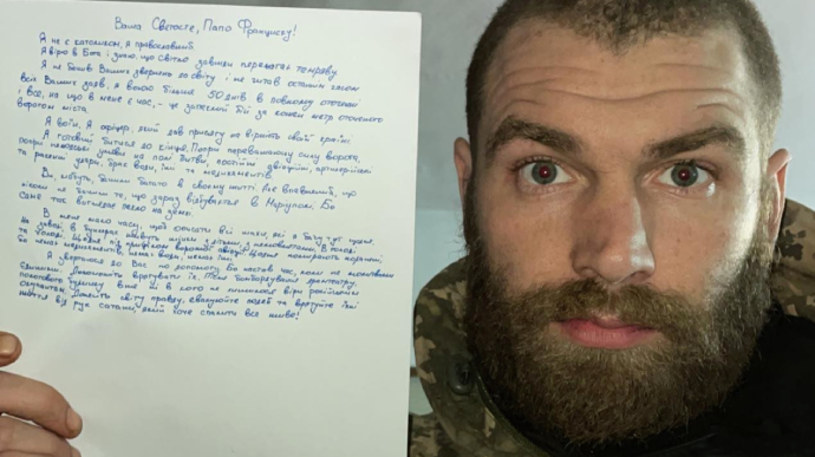 Ваша Святосте, Папо Франциску!
Я не є католиком, я православний.
Я вірю в Бога і знаю, що світло завжди перемагає темряву.
Я не бачив Ваших звернень до світу і не читав останніх
всіх Ваших заяв, я воюю більше 50 днів в повному оточенні
і все, на що в мене є час, - це запеклий бій за кожен метр оточеного
ворогом міста.
Я воїн. Я офіцер, який дав присягу на вірність своїй країні
Я готовий битися до кінця. Попри переважаючу силу ворога,
попри нелюдські умови на полі битви, постійні авіаційні, артилерійські
та ракетні удари, брак води, їжі та медикаментів.
Ви, мабуть, бачили багато в своєму житті. Але впевнений, що
ніколи не бачили те, що зараз відбувається в Маріуполі. Бо
саме так виглядає пекло на землі.
В мене мало часу, щоб описати всі жахи, які я бачу тут кожен
на заводі, в бункерах живуть жінки з дітьми,
та холоді. Щодня під
бо немає медикаментів, немає води, немає їжі.
Я звертаюся до Вас по допомогу. Бо настав час, коли не молитвами
єдиними. Допоможіть врятувати їх. Після бомбардування драмтеатру,
ні в кого не лишилося віри російським
окупантам. Донесіть світу правду, евакуюйте людей та врятуйте їхні
життя від рук сатани, який хоче спалити все живе!